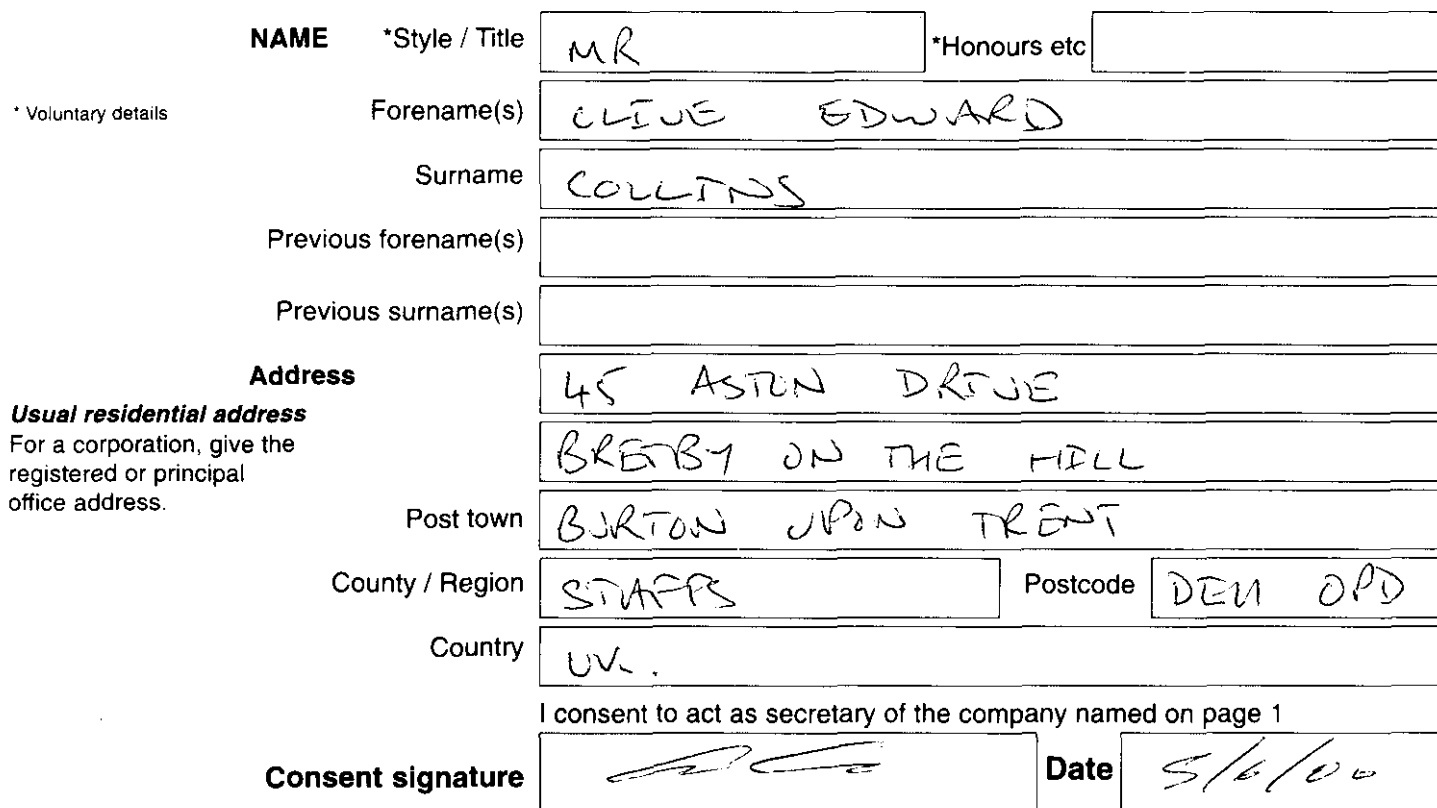 NAME *Style / Title MR *Honours etc
* Voluntary details Forename(s) CLIVE EDWARD
Surname COLLINS
Previous forename(s)
Previous surname(s)
Address 45 ASTON DRIVE
Usual residential address
For a corporation, give the
registered or principal
office address.
BRETBY ON THE HILL
Post town BURTON UPON TRENT
County / Region STAFFS Postcode DE11 0PD
Country UK.
I consent to act as secretary of the company named on page 1
Consent signature Date 5/6/00